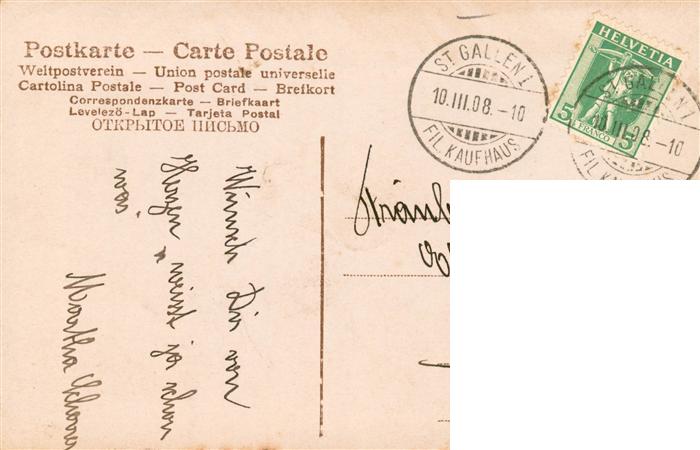 Postkarte — Carte Postale
Weltpostverein — Union postale universelle
Cartolina Postale — Post Card — Brefkort
Correspondenzkarte — Briefkaart
Levelező-Lap — Tarjeta Postal
ОТКРЫТОЕ ПИСЬМО
ST. GALLEN 1
10.III.08.-10
FIL. KAUFHAUS
HELVETIA
5 FRANCO 5
ST. GALLEN 1
10.III.08.-10
FIL. KAUFHAUS
Wünsch Dir von
Herzen
Martha